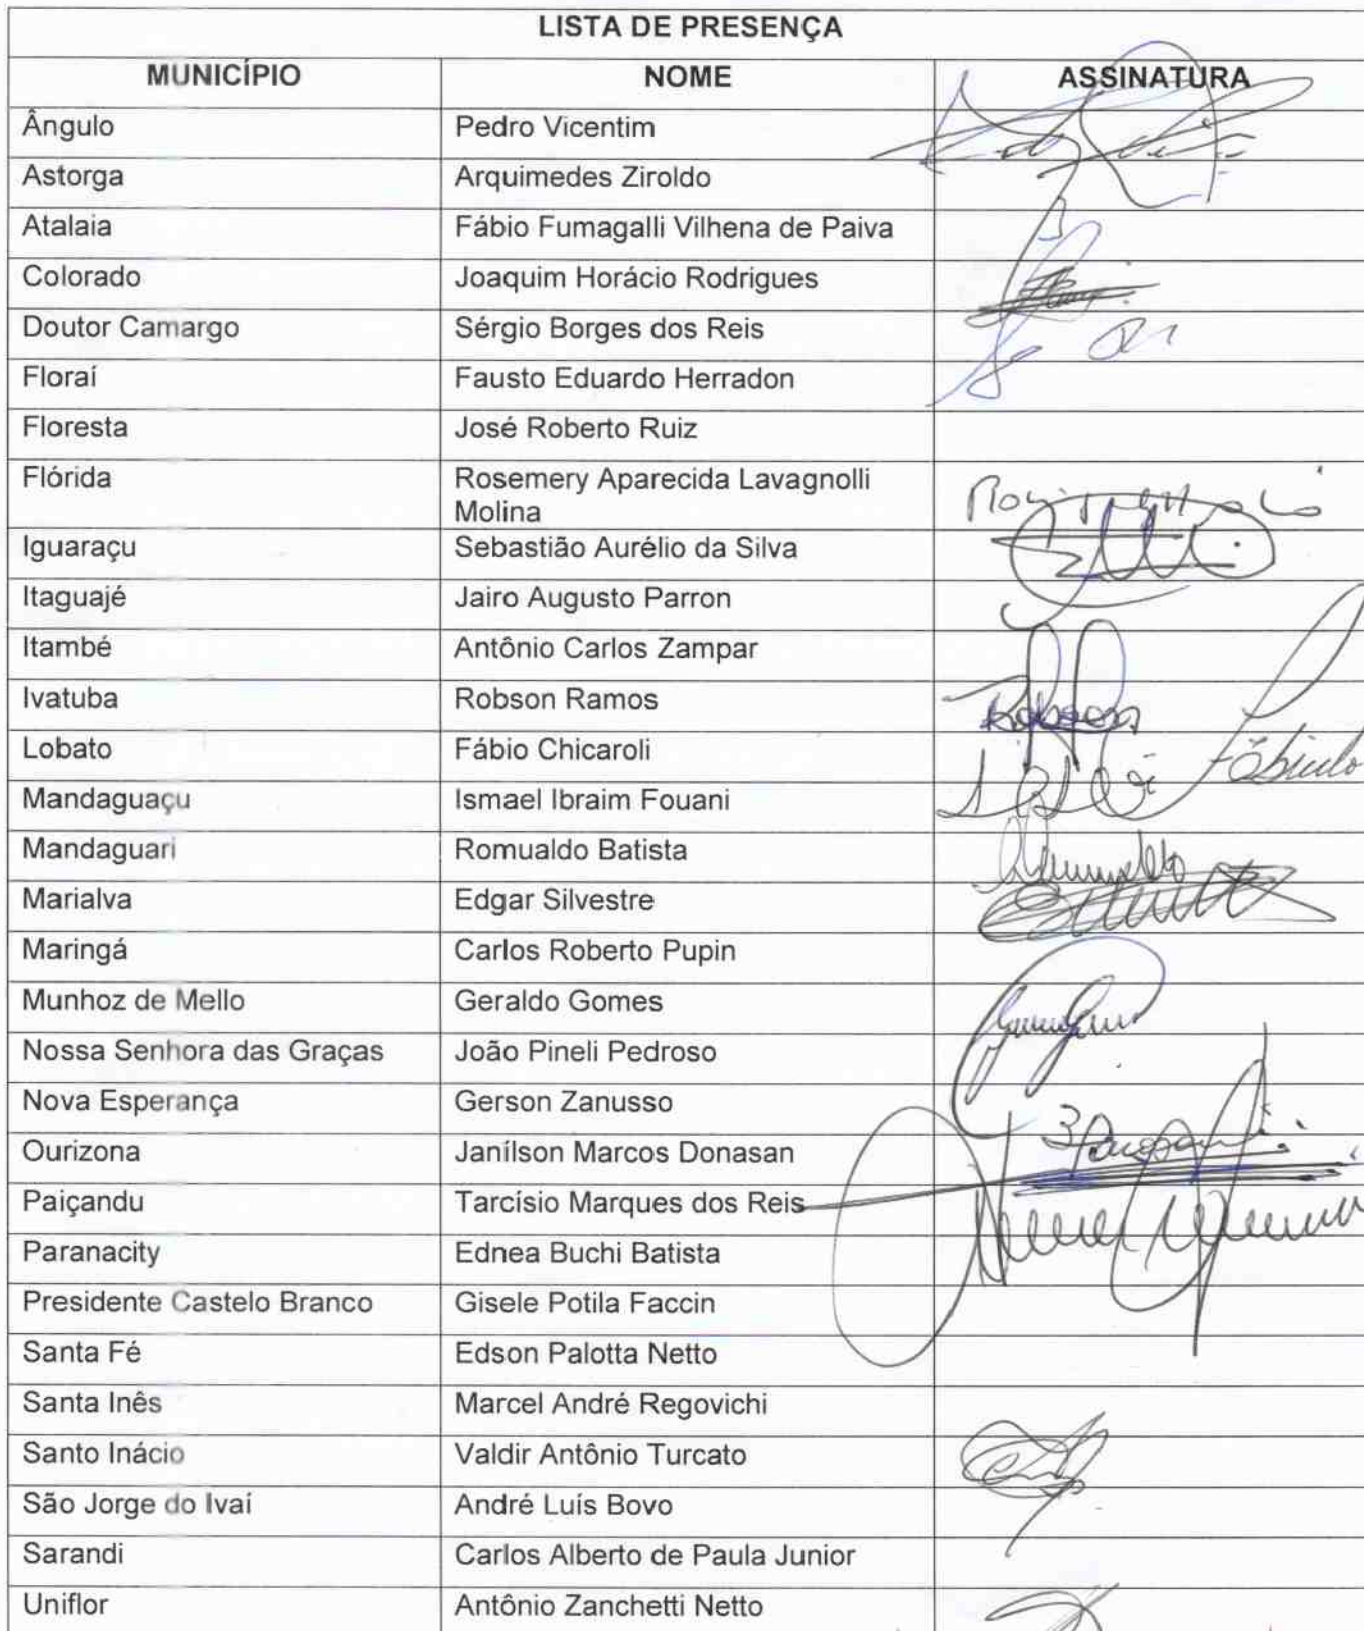 LISTA DE PRESENÇA
MUNICÍPIO NOME ASSINATURA
Ângulo Pedro Vicentim
Astorga Arquimedes Ziroldo
Atalaia Fábio Fumagalli Vilhena de Paiva
Colorado Joaquim Horácio Rodrigues
Doutor Camargo Sérgio Borges dos Reis
Floraí Fausto Eduardo Herradon
Floresta José Roberto Ruiz
Flórida Rosemery Aparecida Lavagnolli
Molina
Iguaraçu Sebastião Aurélio da Silva
Itaguajé Jairo Augusto Parron
Itambé Antônio Carlos Zampar
Ivatuba Robson Ramos
Lobato Fábio Chicaroli
Mandaguaçu Ismael Ibraim Fouani
Mandaguari Romualdo Batista
Marialva Edgar Silvestre
Maringá Carlos Roberto Pupin
Munhoz de Mello Geraldo Gomes
Nossa Senhora das Graças João Pineli Pedroso
Nova Esperança Gerson Zanusso
Ourizona Janílson Marcos Donasan
Paiçandu Tarcísio Marques dos Reis
Paranacity Ednea Buchi Batista
Presidente Castelo Branco Gisele Potila Faccin
Santa Fé Edson Palotta Netto
Santa Inês Marcel André Regovichi
Santo Inácio Valdir Antônio Turcato
São Jorge do Ivaí André Luís Bovo
Sarandi Carlos Alberto de Paula Junior
Uniflor Antônio Zanchetti Netto